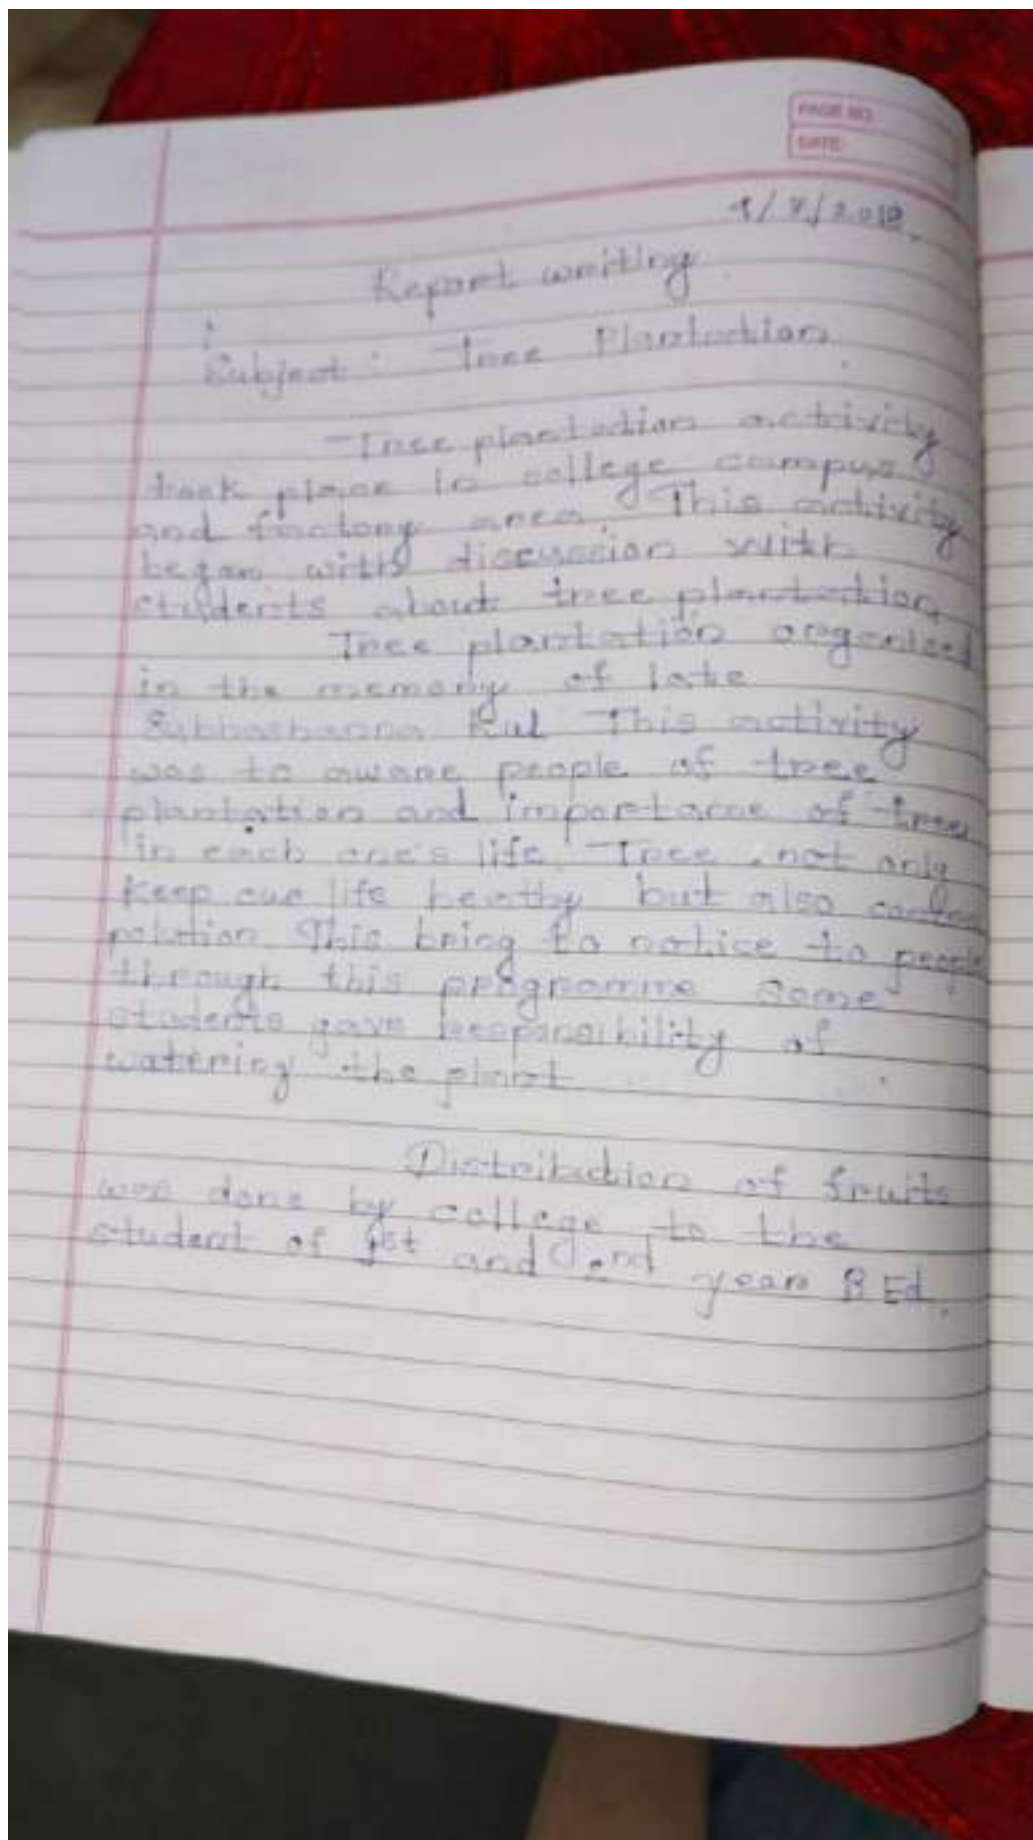 PAGE NO.
DATE:
1/7/2019.
Report writing
Subject: Tree Plantation
Tree plantation activity
took place in college campus
and factory area. This activity
began with discussion with
students about tree plantation
Tree plantation organised
in the memory of late
Subhashanna Kul This activity
was to aware people of tree
plantation and importance of tree
in each one's life Tree not only
keep our life healthy but also control
polution This bring to notice to people
through this programme some
students gave responsibility of
watering the plant
Distribution of fruits
was done by college to the
student of 1st and 2nd year B.Ed.